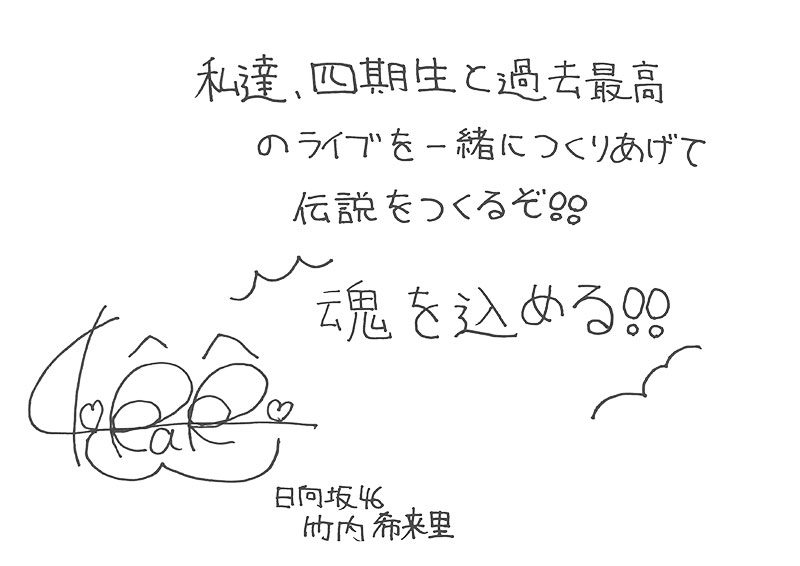 私達、四期生と過去最高
のライブを一緒につくりあげて
伝説をつくるぞ!!
魂を込める!!
日向坂46
竹内希来里